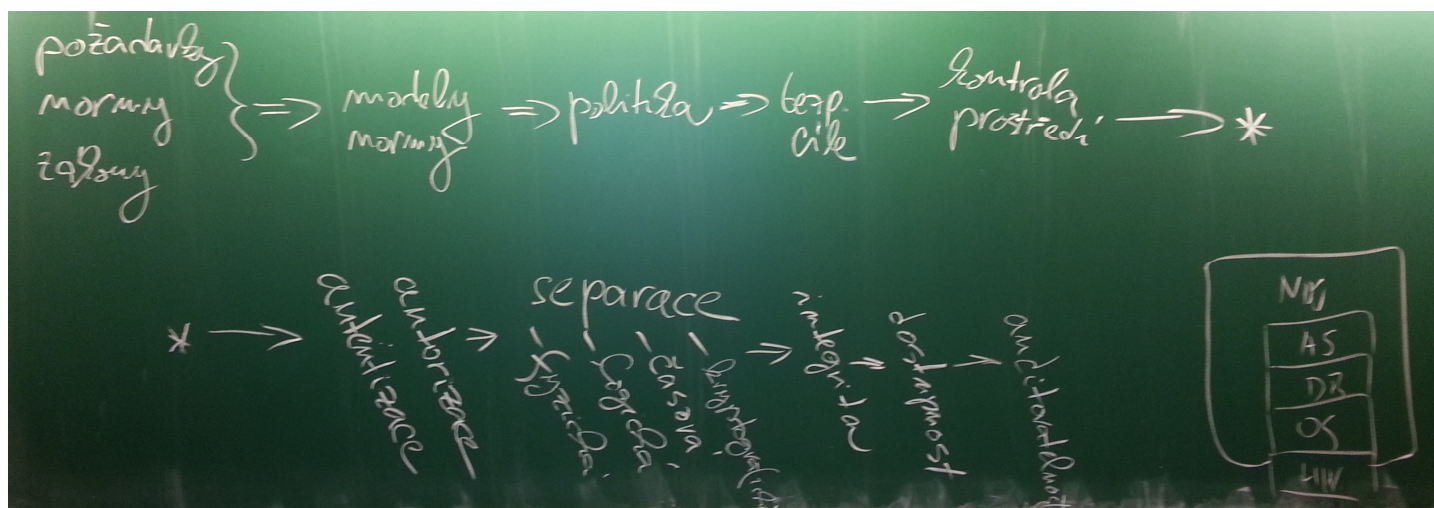 požadavky
normy
zákony
} => modely
normy
=> politika => bezp.
cíle
-> kontrola
prostředí -> *
* -> autentizace
autorizace
-> separace
- fyzická
- logická
- časová
- kryptografická
=> integrita
=> dostupnost
-> auditovatelnost
AS
DB
OS
HW